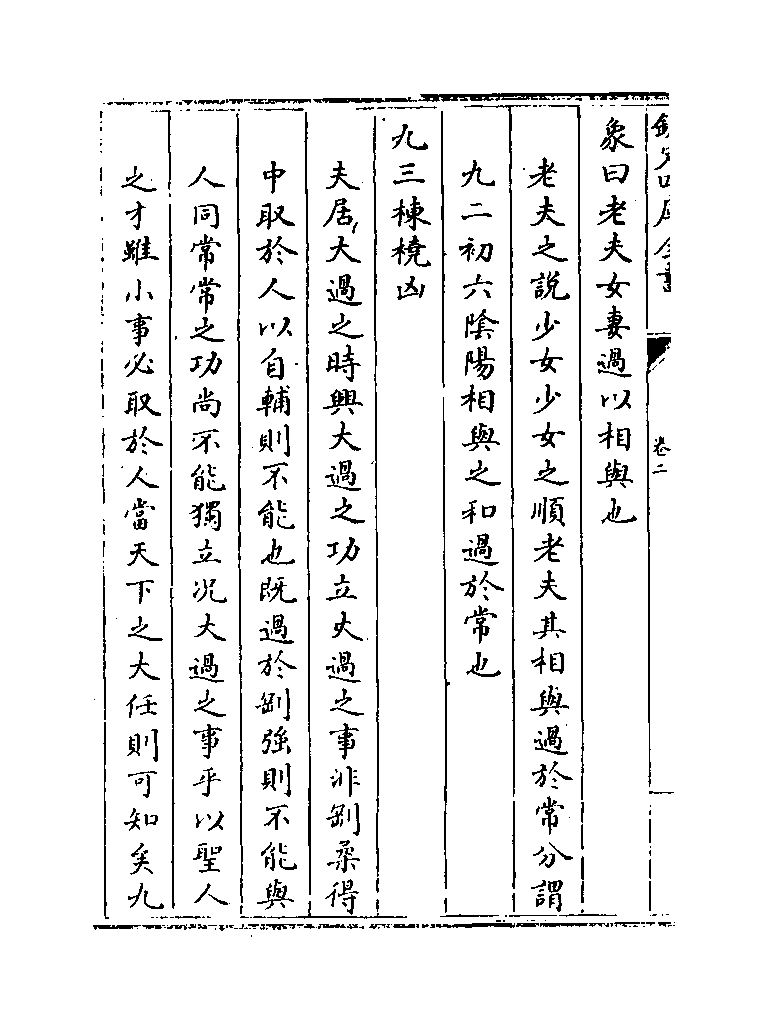 欽定四庫全書
卷二
象曰老夫女妻過以相與也
老夫之說少女少女之順老夫其相與過於常分謂
九二初六陰陽相與之和過於常也
九三棟橈凶
夫居大過之時興大過之功立大過之事非剛柔得
中取於人以自輔則不能也既過於剛強則不能與
人同常常之功尚不能獨立况大過之事乎以聖人
之才雖小事必取於人當天下之大任則可知矣九